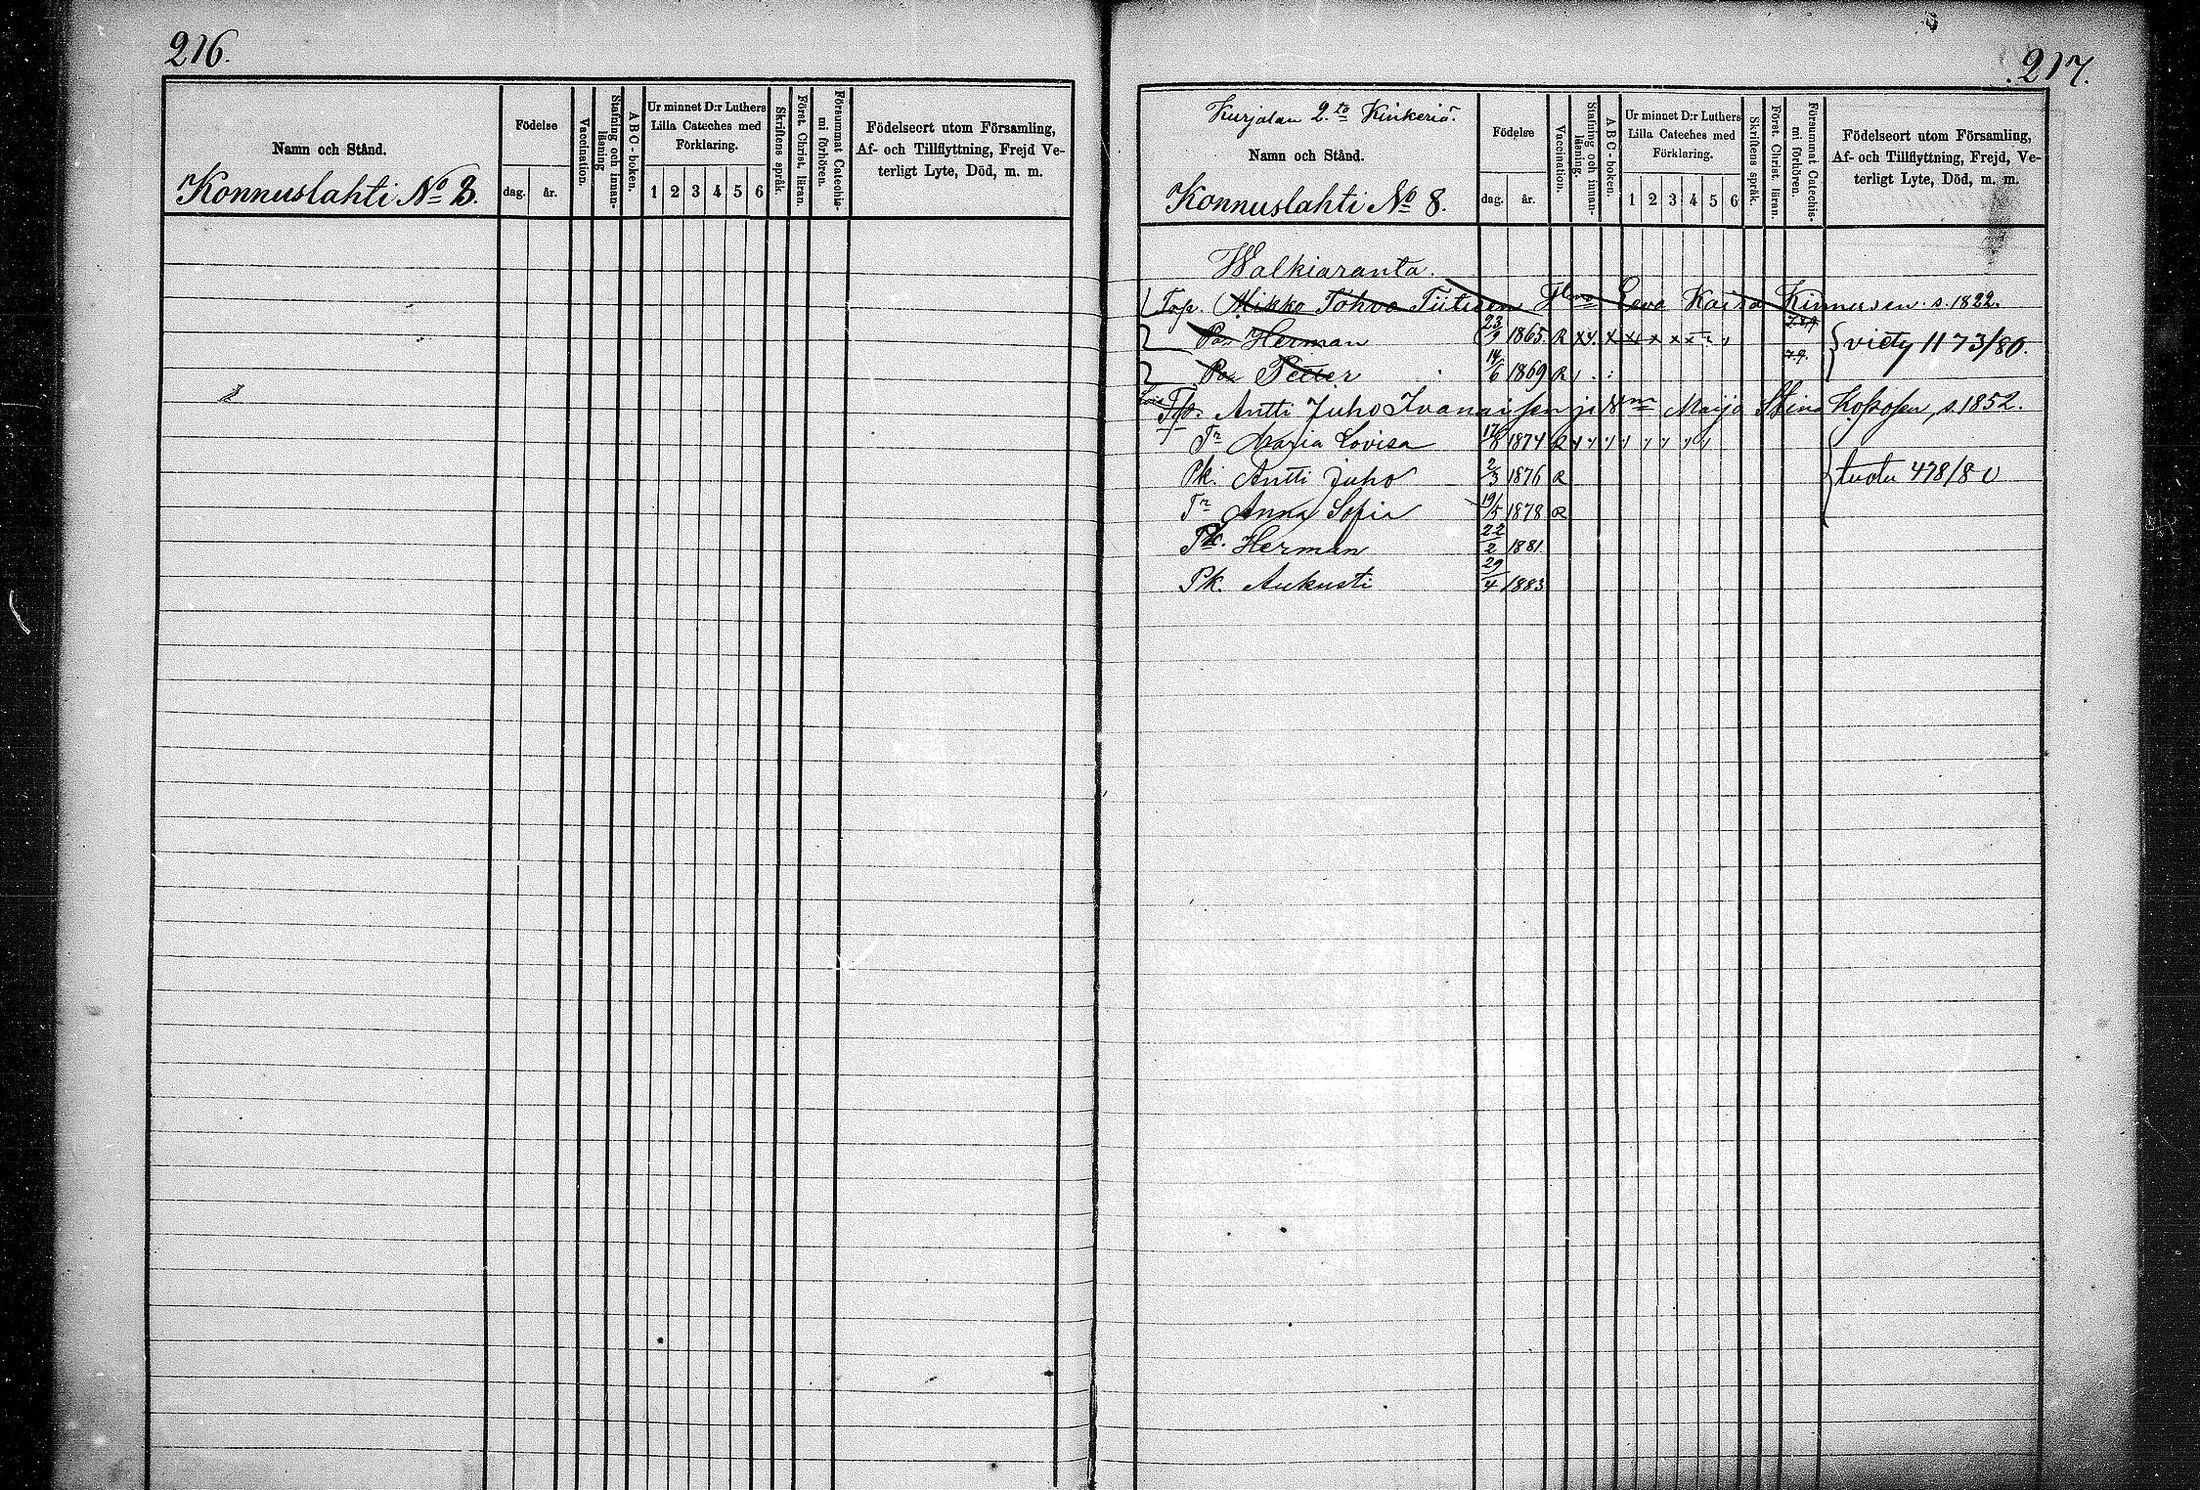 216.
Namn och Stånd.
Födelse
dag. år.
Vaccination.
Stafning och innanläsning
ABC-boken.
Ur minnet D:r Luthers
Lilla Cateches med
Förklaring.
1 2 3 4 5 6
Skriftens språk.
Först. Christ. läran.
Försummat Catechismi förhören.
Födelseort utom Församling,
Af- och Tillflyttning, Frejd Ve-
terligt Lyte, Död, m. m.
Konnuslahti No 8.
217.
Kurjalan 2.to Kinkeriä.
Namn och Stånd.
Konnuslahti No 8.
Födelse
dag. år.
Vaccination.
Stafning och innanläsning.
ABC-boken.
Ur minnet D:r Luthers
Lilla Cateches med
Förklaring.
1 2 3 4 5 6
Skriftens språk.
Först. Christ. läran.
Försummat Catechismi förhören.
Födelseort utom Församling,
Af- och Tillflyttning, Frejd, Ve-
terligt Lyte, Död, m. m.
Walkiaranta.
Mikko Tiitinen Eeva Kaisa Kinnusen s. 1822.
Herman 23/9 1865 R x x x x x x x
viety 1173/80.
Petter 14/6 1869 R
Antti Juho Ivanaisen ja Maija Stina Kososen, s. 1852.
Tr Maria Lovisa 17/8 1874 R
Pk. Antti Juho 2/3 1876 R
tuotu 478/80
Tr Anna Sofia 19/5 1878 R
Pk. Herman 22/2 1881
Pk. Aukusti 29/4 1883